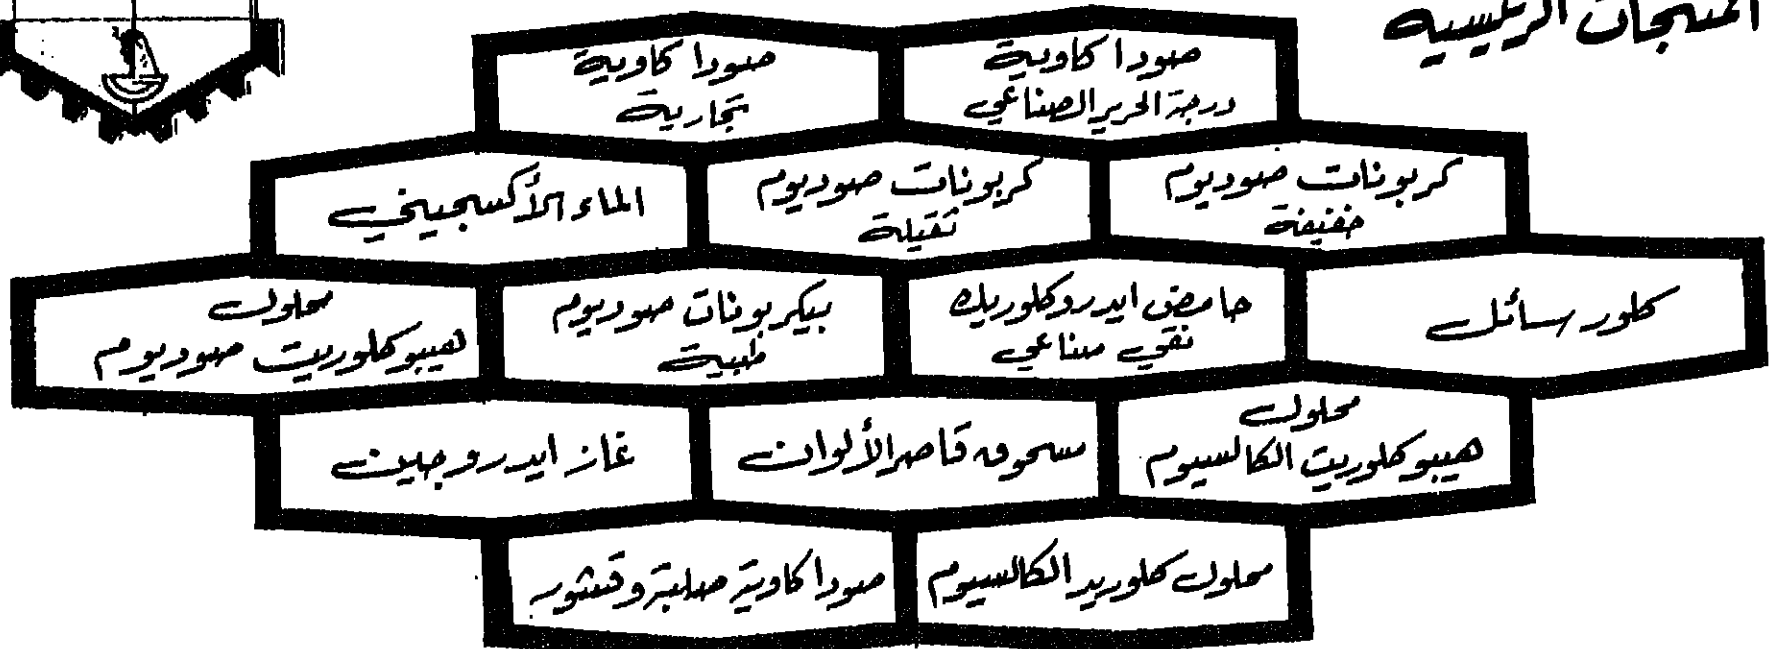 المنتجات الرئيسية
صودا كاوية
درجة الحرير الصناعي
صودا كاوية
تجارية
كربونات صوديوم
خفيفة
كربونات صوديوم
ثقيلة
الماء الأكسجيني
كلور سائل
حامض ايدروكلوريك
نقي صناعي
بيكربونات صوديوم
طبية
محلول
هيبوكلوريت صوديوم
محلول
هيبوكلوريت الكالسيوم
سحوق قاصر الألوان
غاز ايدروجين
محلول كلوريد الكالسيوم
صودا كاوية صلبة وقشور